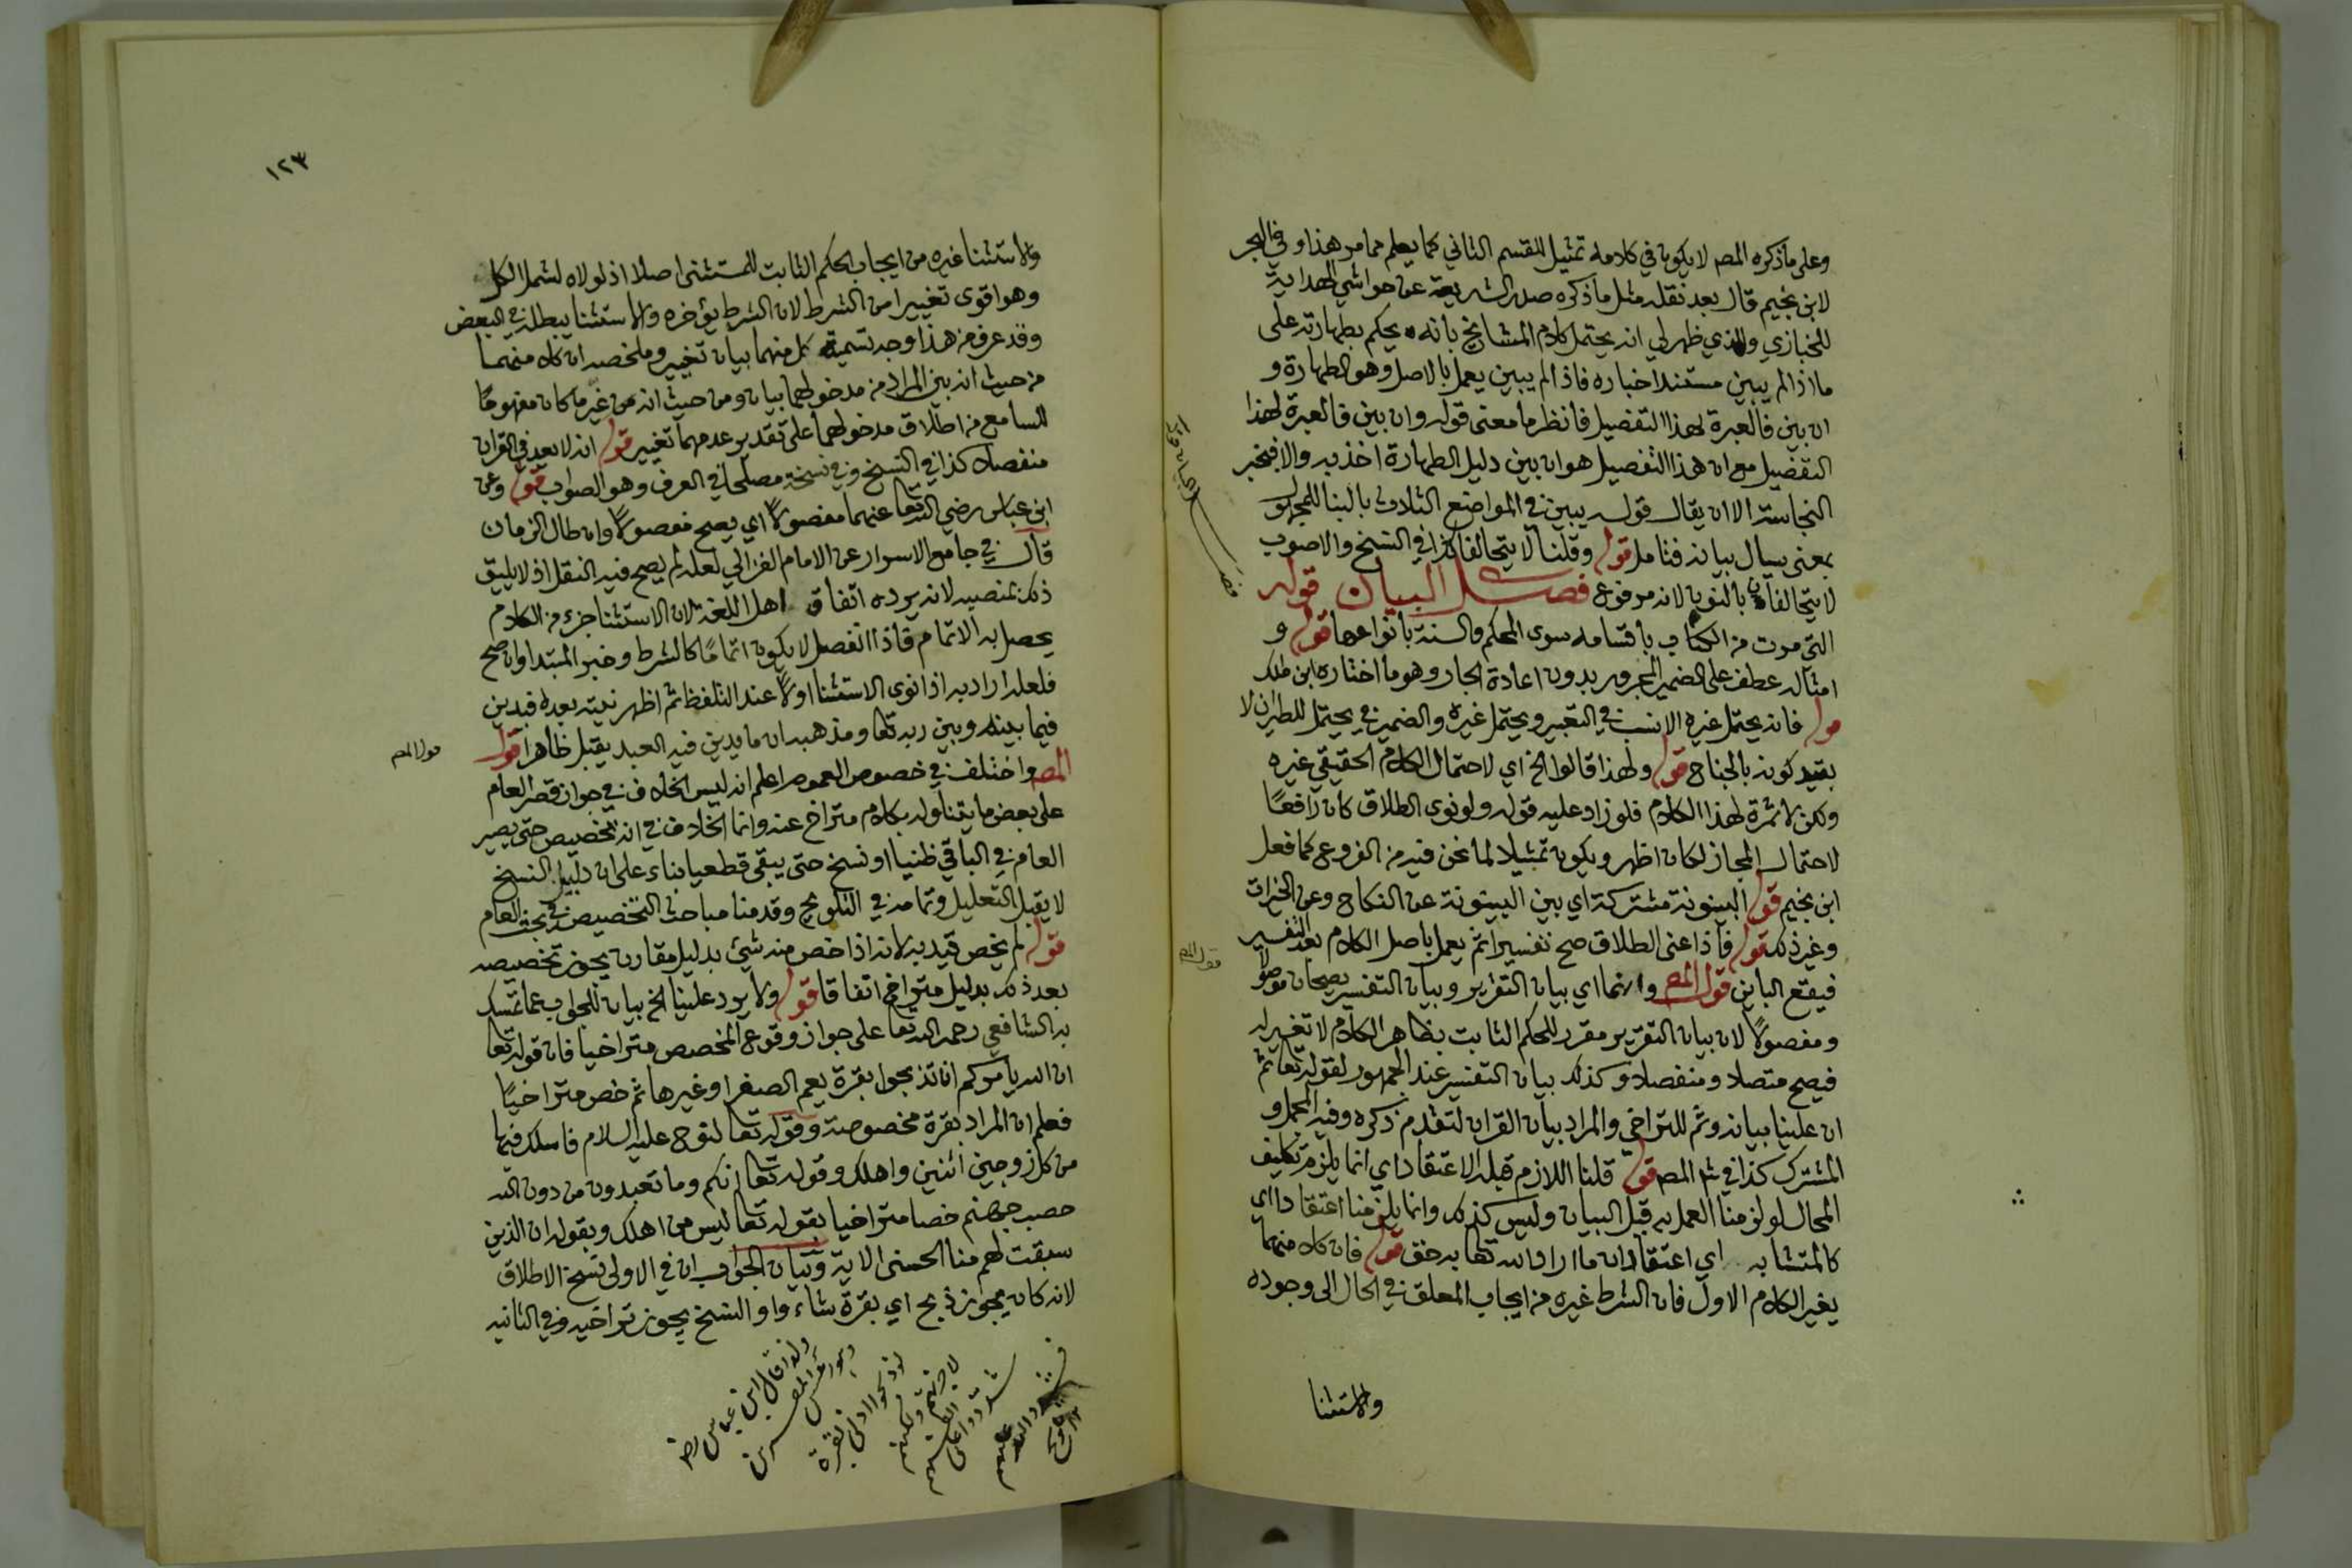 وعلى ماذكره المص لا يكون في كلامه تمثيل للقسم الثاني كما يعلم مما مر هذا وفي البحر
لابن نجيم قال بعد نقله مثل ما ذكره صدر الشريعة عن حواشي الهداية
للخبازي والذي ظهر لي انه يحتمل كلام المشايخ بانه يحكم بطهارته على
ما اذا لم يبين مستند اخباره فاذا لم يبين يعمل بالاصل وهو الطهارة و
ان بين فالعبرة لهذا التفصيل فانظر ما معنى قوله وان بين فالعبرة لهذا
التفصيل مع ان هذا التفصيل هو ان بين دليل الطهارة اخذ به والا فبخبر
النجاسة الا ان يقال قوله يبين في المواضع الثلاث بالبنا للمجهول
بمعنى يسال بيانه فتامل قوله وقلنا لا يتحالفا كذا في النسخ والاصوب
لا يتحالفان بالنون لانه مرفوع فصل البيان قوله
التي مرت من الكتاب باقسامه سوى المحكم والسنة بانواعها قوله و
امثاله عطف على الضمير المجرور بدون اعادة الجار وهو ما اختاره ابن ملك
قوله فانه يحتمل غيره الانسب في التعبير ويحتمل غيره والضمير في يحتمل للطيران لا
بقيد كونه بالجناح قوله ولهذا قالوا الخ اي لاحتمال الكلام الحقيقي غيره
ولكن لا ثمرة لهذا الكلام فلو زاد عليه قوله ولو نوى الطلاق كان رافعًا
لاحتمال المجاز لكان اظهر ويكون تمثيلا لما نحن فيه من الفروع كما فعل
ابن نجيم قوله البينونة مشتركة اي بين البينونة عن النكاح وعن الخيرات
وغير ذلك قوله فاذا عنى الطلاق صح تفسيرا ثم يعمل باصل الكلام بعد التفسير
فيقع الباين قول المص وانهما اي بيان التقرير وبيان التفسير يصحان موصولا
ومفصولًا لان بيان التقرير مقرر للحكم الثابت بظاهر الكلام لا تغيير له
فيصح متصلا ومنفصلا وكذلك بيان التفسير عند الجمهور لقوله تعا ثم
ان علينا بيانه وثم للتراخي والمراد بيان القران لتقدم ذكره وفيه المجمل و
المشترك كذا في ش المص قوله قلنا اللازم قبله الاعتقاد اي انما يلزم تكليف
المحال لو لزمنا العمل به قبل البيان وليس كذلك وانما يلزمنا اعتقاد اي
كالمتشابه اي اعتقاد ان ما اراد الله تعا به حق قوله فان كلا منهما
يغير الكلام الاول فان الشرط غيره من ايجاب المعلق في الحال الى وجوده
والاستثنا
قول المص
١٢٣
والاستثنا غيره من ايجاب الحكم الثابت للمستثنى اصلا اذ لولاه لشمل الكل
وهو اقوى تغييرا من الشرط لان الشرط يؤخره والاستثنا يبطله في البعض
وقد عرف من هذا وجه تسمية كل منهما بيان تغيير وملخصه ان كلا منهما
من حيث انه بين المراد من مدخولهما بيان ومن حيث انه من غير ما كان مفهومًا
للسامع من اطلاق مدخولهما على تقدير عدمهما تغيير قوله انه لا يعد في القران
منفصلا كذا في النسخ وفي نسخة مصلحا في العرف وهو الصواب قوله وعن
ابن عباس رضي الله تعا عنهما مفصولًا اي يصح مفصولًا وان طال الزمان
قال في جامع الاسرار عن الامام الغزالي لعله لم يصح فيه النقل اذ لا يليق
ذلك بمنصبه لانه يرده اتفاق اهل اللغة لان الاستثنا جزء من الكلام
يحصل به الاتمام فاذا انفصل لا يكون اتمامًا كالشرط وخبر المبتدا وان صح
فلعله اراد به اذا نوى الاستثنا اولًا عند التلفظ ثم اظهر نيته بعده فيدين
فيما بينه وبين ربه تعا ومذهبه ان ما يدين فيه العبد يقبل ظاهرا قول
المص واختلف في خصوص العموم اعلم انه ليس الخلاف في جواز قصر العام
على بعض ما يتناوله بكلام متراخ عنه وانما الخلاف في انه تخصيص حتى يصير
العام في الباقي ظنيا او نسخ حتى يبقى قطعيا بناء على ان دليل النسخ
لا يقبل التعليل وتمامه في التلويح وقدمنا مباحث التخصيص في بحث العام
قوله لم يخص قيد به لانه اذا خص منه شئ بدليل مقارن يجوز تخصيصه
بعد ذلك بدليل متراخ اتفاقا قوله ولا يرد علينا الخ بيان للجواب عما تمسك
به الشافعي رحمه الله تعا على جواز وقوع المخصص متراخيا فان قوله تعا
ان الله يامركم ان تذبحوا بقرة يعم الصفرا وغيرها ثم خص متراخيًا
فعلم ان المراد بقرة مخصوصة وقوله تعا لنوح عليه السلام فاسلك فيها
من كل زوجين اثنين واهلك وقوله تعا انكم وما تعبدون من دون الله
حصب جهنم خصا متراخيا بقوله تعا ليس من اهلك وبقوله ان الذين
سبقت لهم منا الحسنى الاية وبيان الجواب ان في الاولى نسخ الاطلاق
لانه كان يجوز ذبح اي بقرة شاء واو النسخ يجوز تراخيه وفي الثانيه
قول المص
ولذا قال ابن عباس رضي
وهو راس المفسرين
لو ذبحوا ادنى بقرة
لاجزتهم ولكنهم
شددوا على انفسهم
فشدد الله عليهم